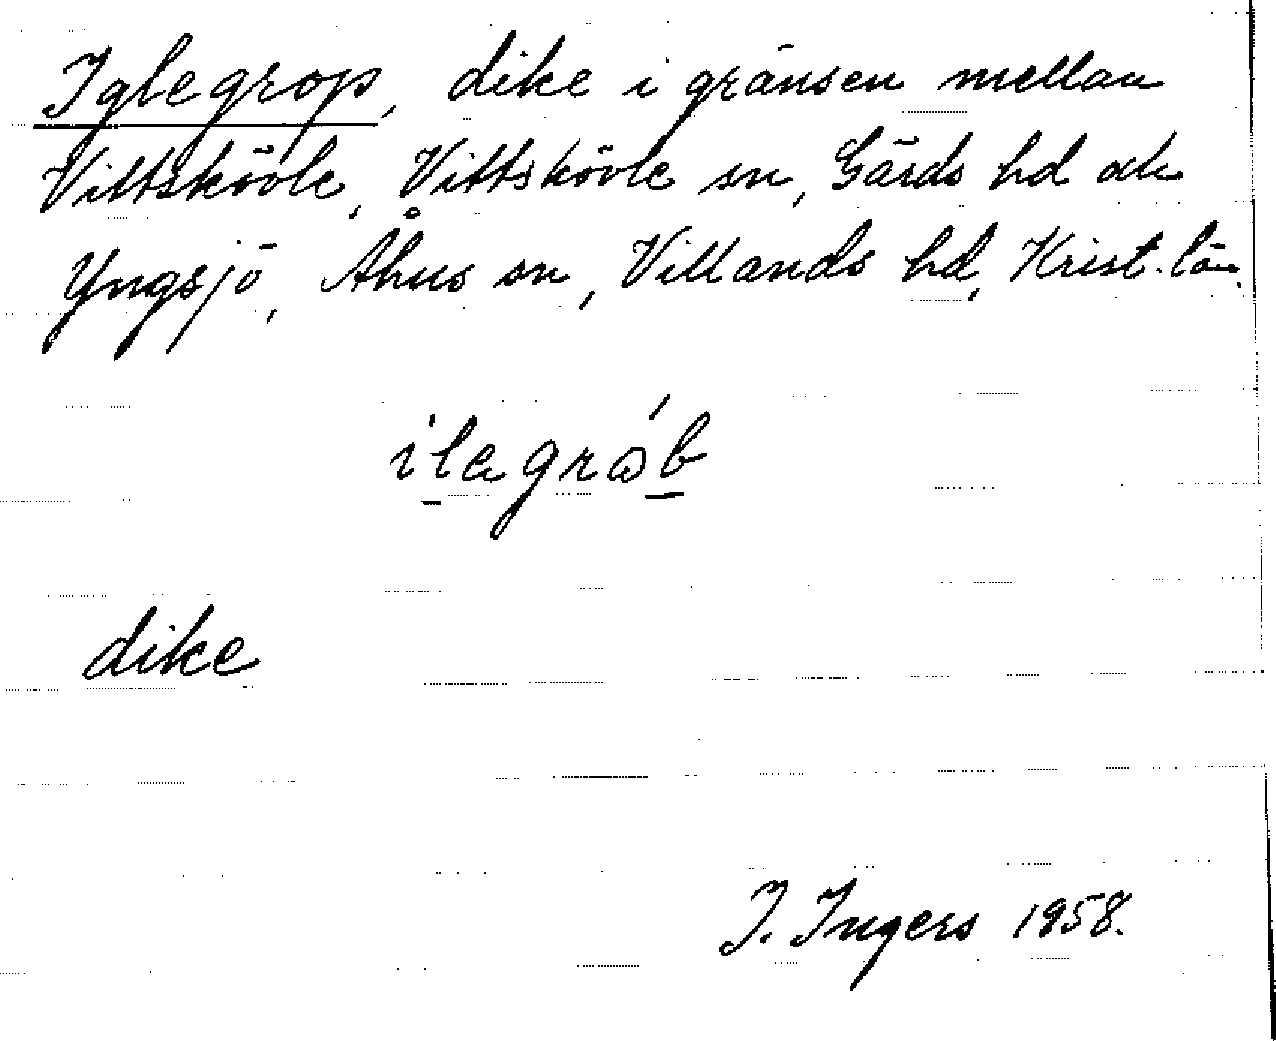 Iglegrop, dike i gränsen mellan
Vittskövle, Vittskövle sn, Gärds hd och
Yngsjö, Åhus sn, Villands hd, Krist. län.
dike
I. Ingers 1958.